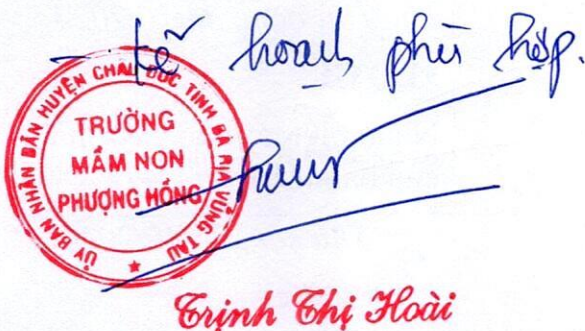 - kế hoạch phù hợp.
ỦY BAN NHÂN DÂN HUYỆN CHÂU ĐỨC TỈNH BÀ RỊA VŨNG TÀU
TRƯỜNG
MẦM NON
PHƯỢNG HỒNG
Trịnh Thị Hoài